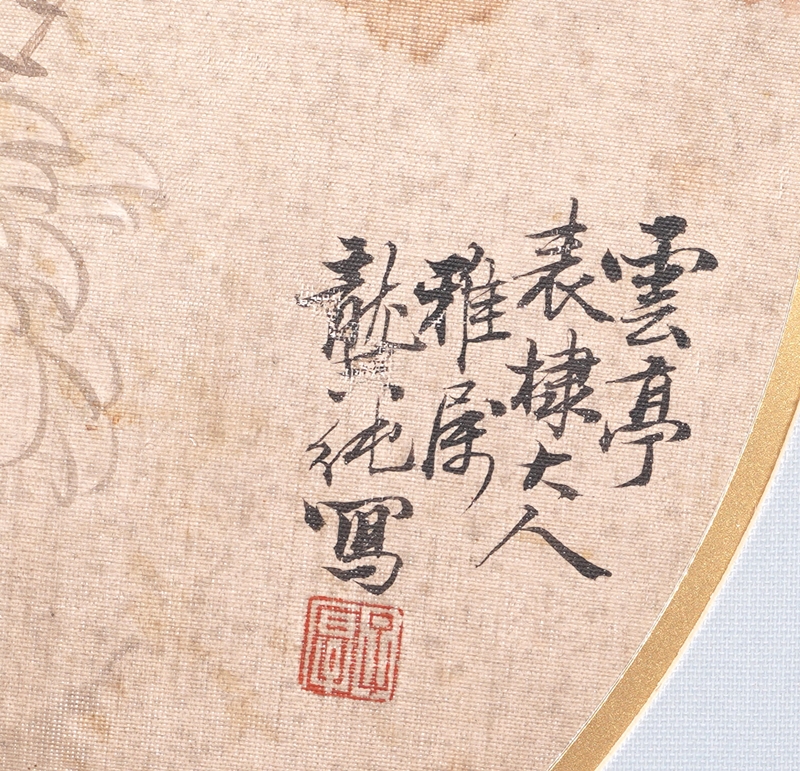 雲亭
表棣大人
雅屬
龔純寫